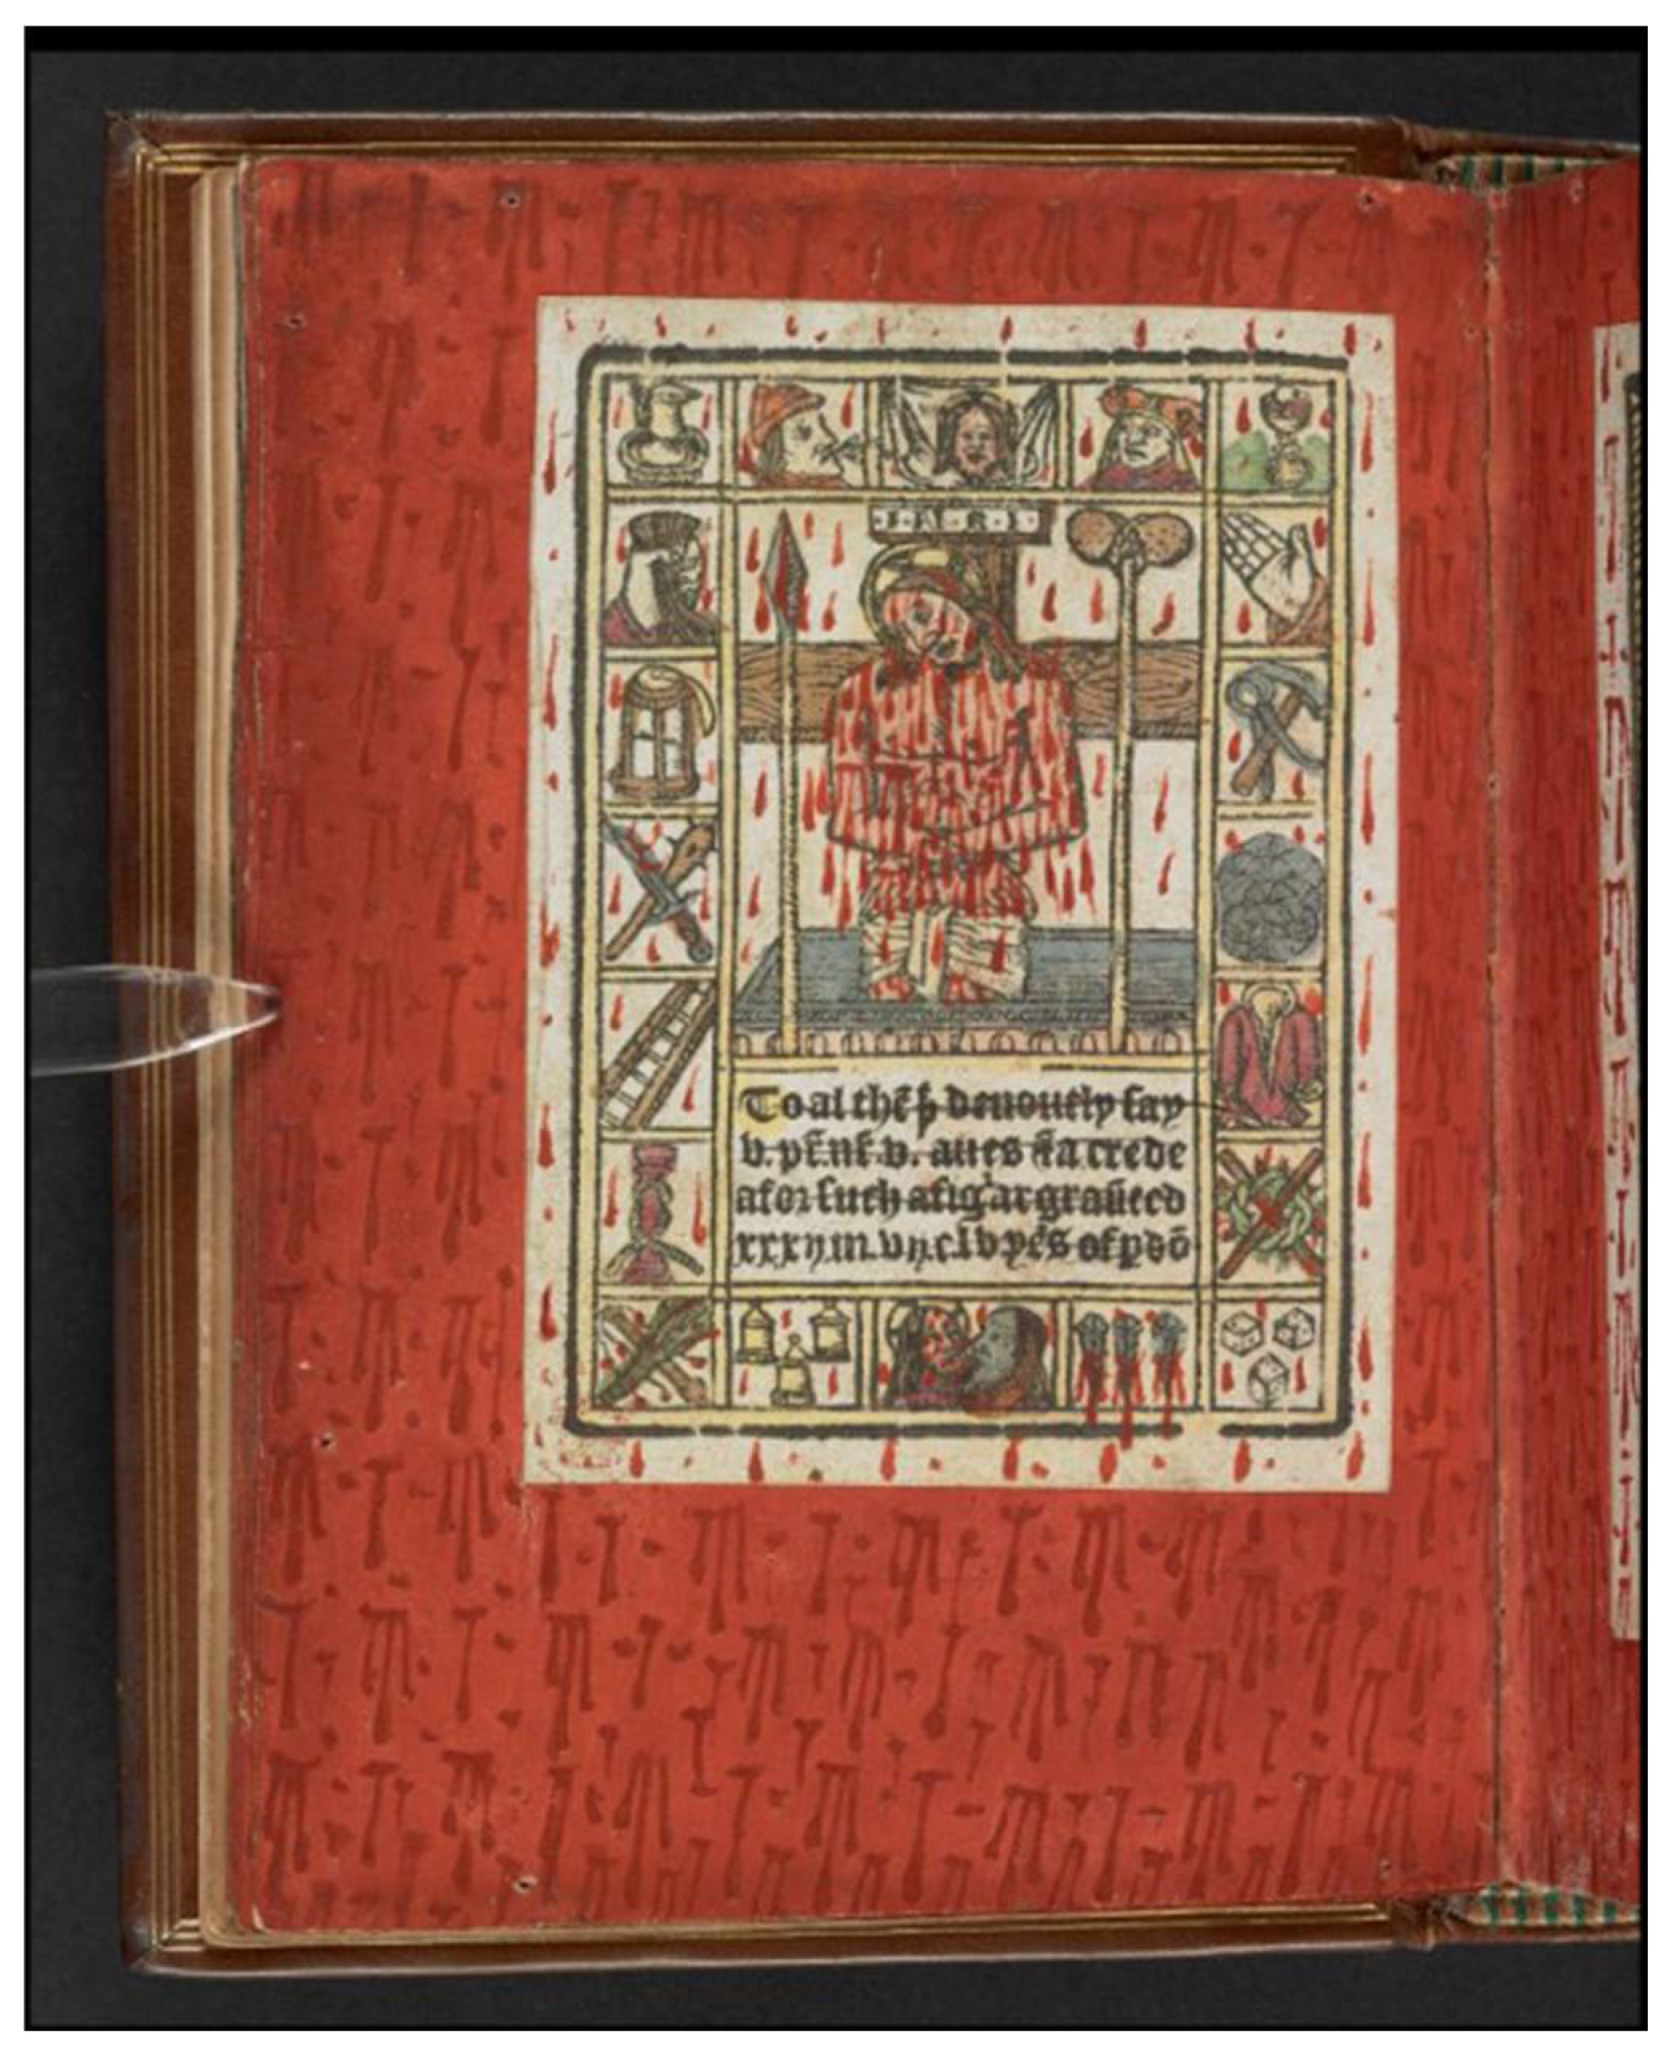 I·N·R·I
To al thē þ deuoutly say
v. pr̄ nr̄ v. aues & a crede
afor such a figʳ ar graūted
xxxij m vij c lv yēs of pdō